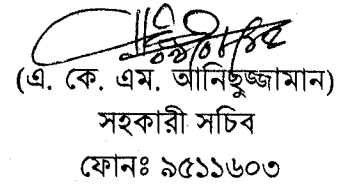 (এ. কে. এম. আনিছুজ্জামান)
সহকারী সচিব
ফোনঃ ৯৫১১৬০৩